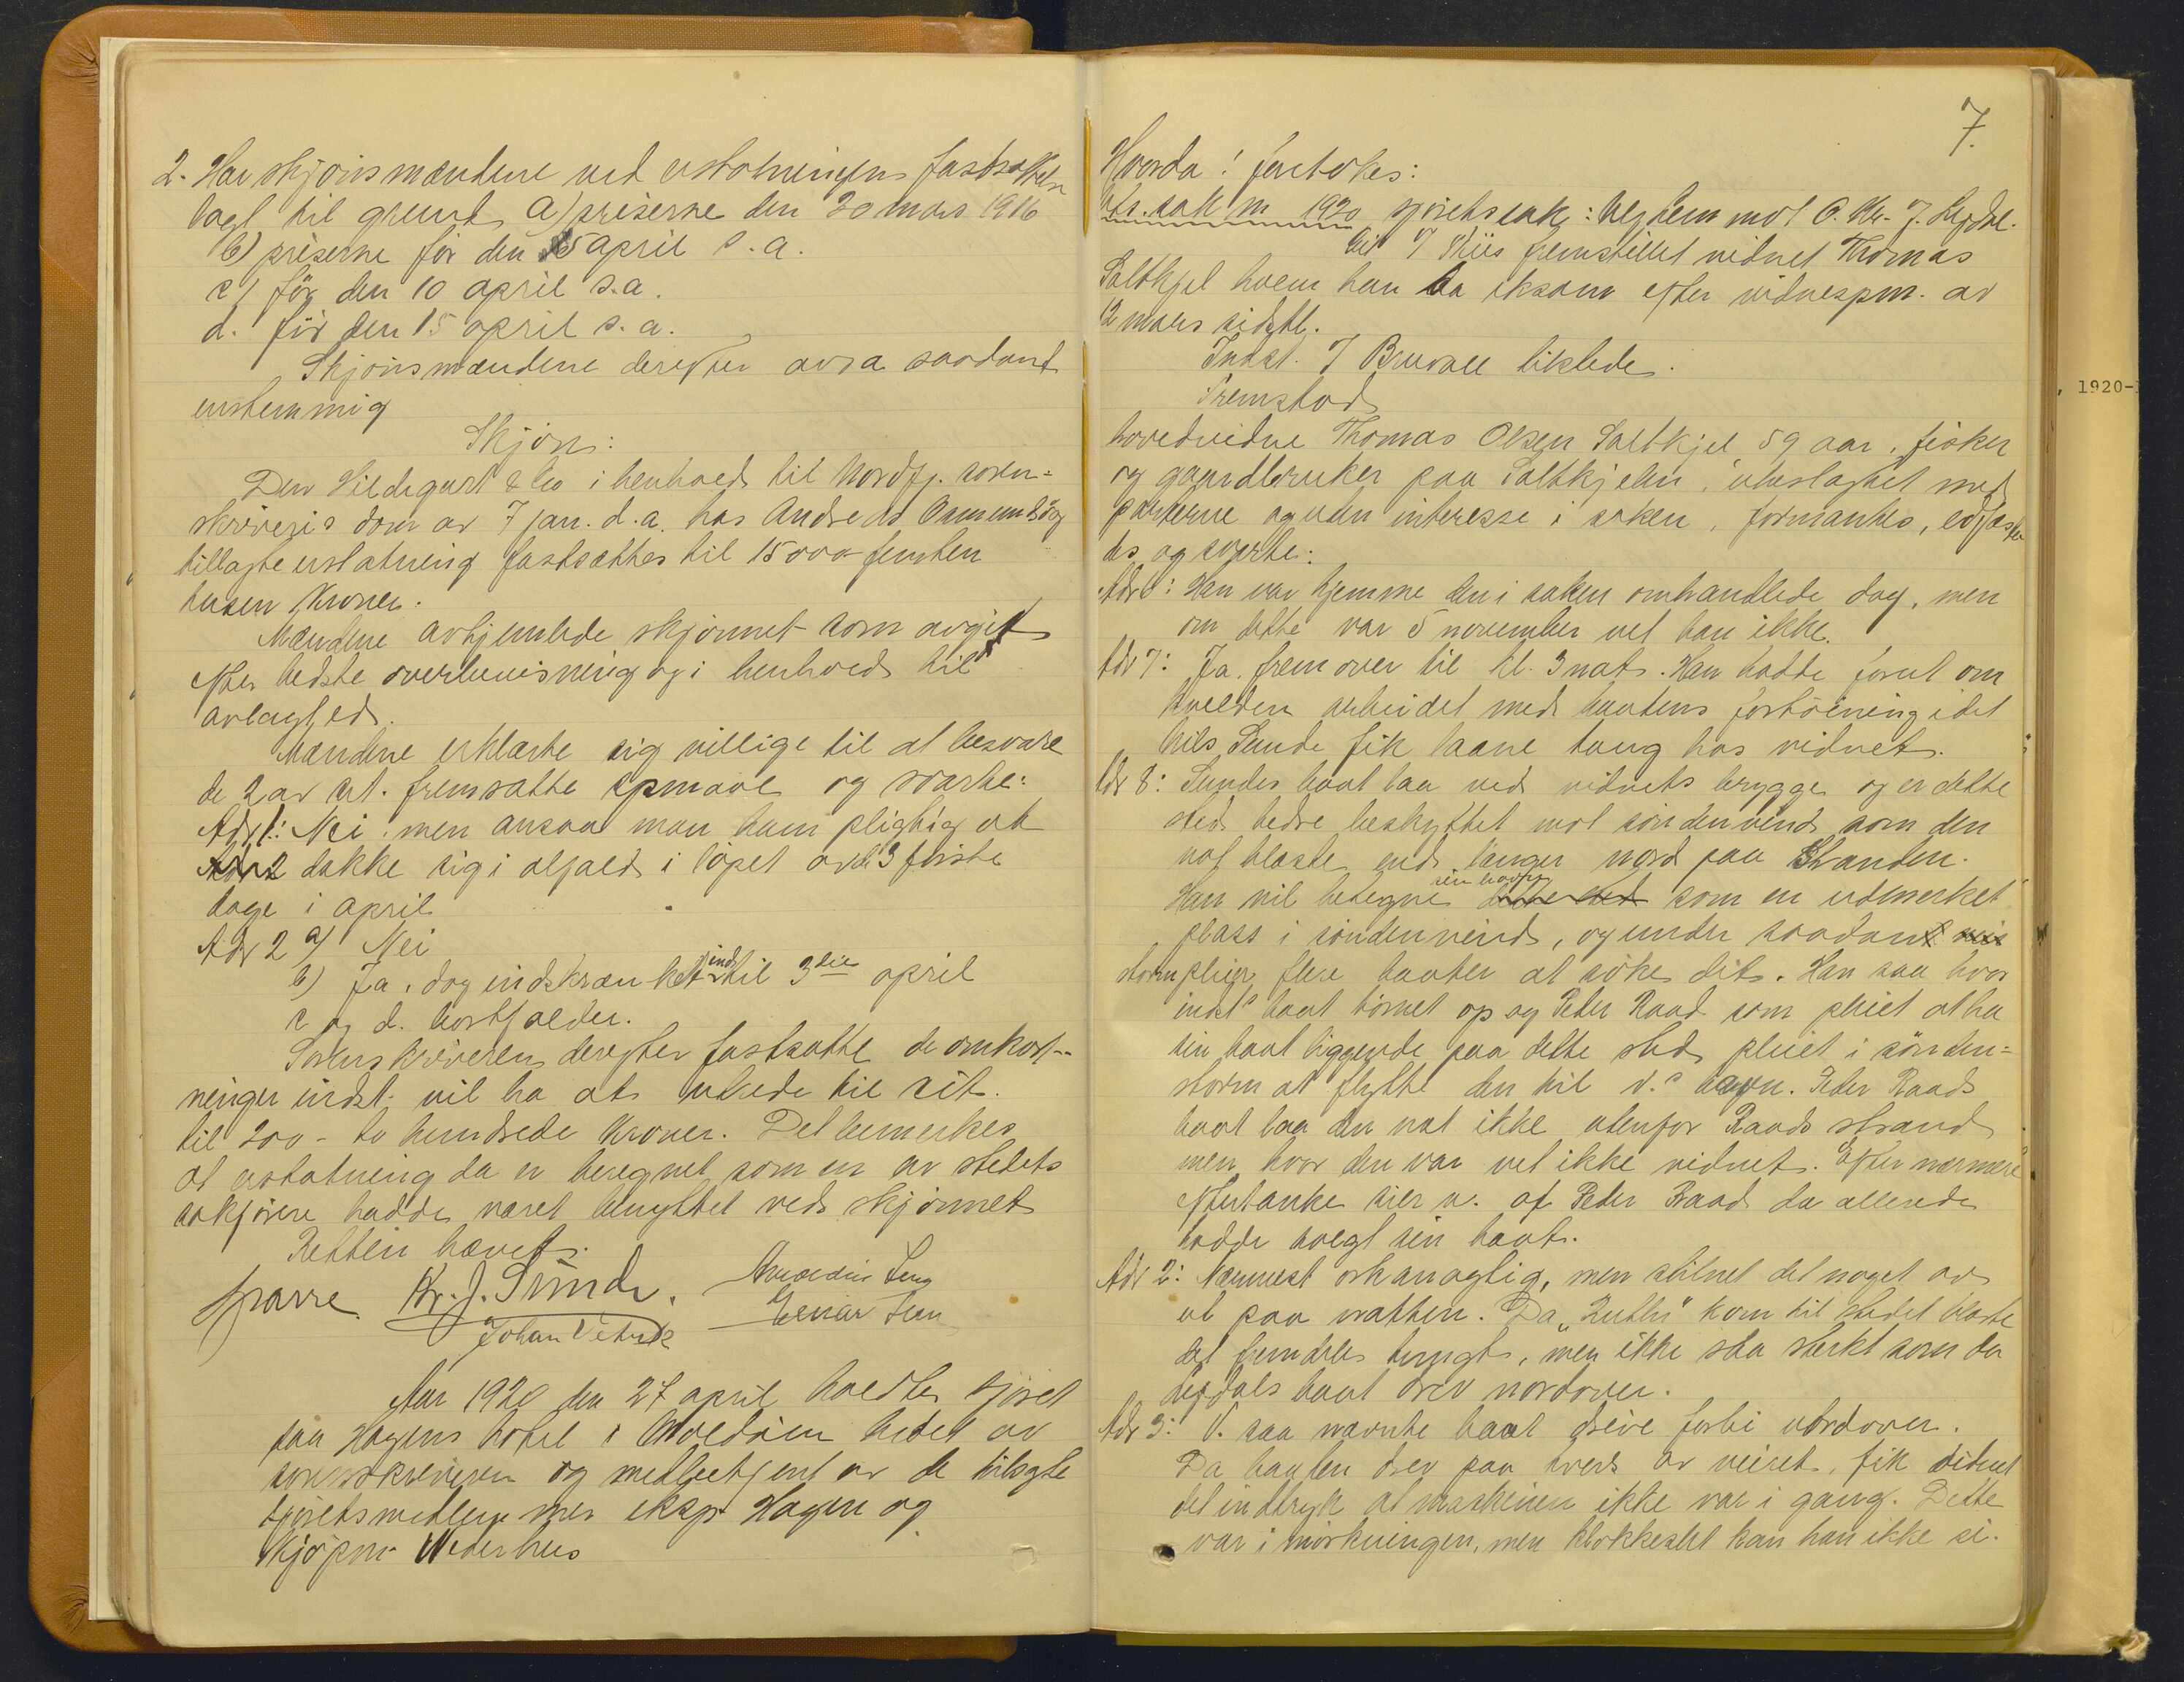 2. Har skjønsmændene ved erstatningens fastsættelse
lagt til grund a) priserne den 20 mars 1916
b) priserne før den 5 april s.a.
c) før den 10 april s.a.
d. før den 15 april s.a.
Skjønsmændene derefter avga saadant
enstemmig
Skjøn:
Den Hildegart & Co i henhold til Nordfj. soren-
skriveris dom av 7 jan. d.a. hos Andreas
tillagte erstatning fastsættes til 15000 femten
tusen Kroner.
Mændene avhjemlede skjønnet som avgit
efter bedste overbevisning og i henhold til
avlagt ed.
Mændene erklærte sig villige til at besvare
de 2 av cit. fremsatte spmaal og svarte:
Adr 1: Nei. men ansaa man ham pligtig at
dække sig i alfald i løpet av de 3 første
dage i april
Adr 2 a) Nei
b) Ja, dog indskrænket indtil 3die april
c og d. bortfalder.
Sorenskriveren derefter fastsatte de omkost-
ninger indst. vil ha at utrede til cit.
til 200 - to hundrede Kroner. Det bemerkes
at erstatning da er beregnet som en av stedets
sakførere hadde været benyttet ved skjønnet
Retten hævet.
Sparre Kr. J. Sunde.
Johan Vetvik
Aar 1920 den 27 april holdtes sjøret
paa Hagens hotel i Moldøen ledet av
sorenskriveren og medbetjent av de tilsagte
sjøretsmedlemmer eksp. Hagen og
Kjøpm. Wederhus
7.
Hvorda! foretokes:
sak nr 1920 sjøretssak: mot O. Kr. J. Løfdal.
Cit. Thiis fremstillet vidnet Thomas
Saltkjel hvem han ba eksam. efter vidnespm. av
12 mars sidstl.
Indst. Bruvall likeledes.
Fremstod
hovedvidne Thomas Olsen Saltkjel, 59 aar, fisker
og gaardbruker paa Saltkjelen, ubeslægtet med
parterne og uden interesse i saken, formantes, edfæste-
des og svarte:
Adr 6: Han var hjemme den i saken omhandlede dag, men
om dette var 5 november vet han ikke.
Adr 7: Ja. fremover til kl. 3 nat. Han hadde forut om
kvelden arbeidet med baatens fortøining idet
Nils Sunde fik laane taug hos vidnet.
Adr 8: Sundes baat laa ved vidnets brygge og er dette
sted bedre beskyttet mot søndenvind som den
nat blaaste, end længer nord paa Stranden.
Han vil betegne sin havn som en utmerket
plass i søndenvind, og under saadan
storm pleier flere baater at søke dit. Han saa hvor
indst's baat tørnet op og Peder Raad som pleiet at ha
sin baat liggende paa dette sted pleiet i sønden-
storm at flytte den til v.s havn. Peder Raads
baat laa den nat ikke utenfor Raads strand
men hvor den var vet ikke vidnet. Efter nærmere
eftertanke sier v. at Peder Raad da allerede
hadde solgt sin baat.
Adr 2: Nærmest orkanagtig, men stilnet det noget av
ut paa natten. Da "Ruth" kom til stedet blaaste
det fremdeles tungt, men ikke saa sterkt som da
Løfdals baat drev nordover.
Adr 3: V. saa nævnte baat drive forbi nordover.
Da baaten drev paa tvers av veiret, fik vidnet
det indtryk at maskinen ikke var i gang. Dette
var i mørkningen, men klokkeslet kan han ikke si.
, 1920-1